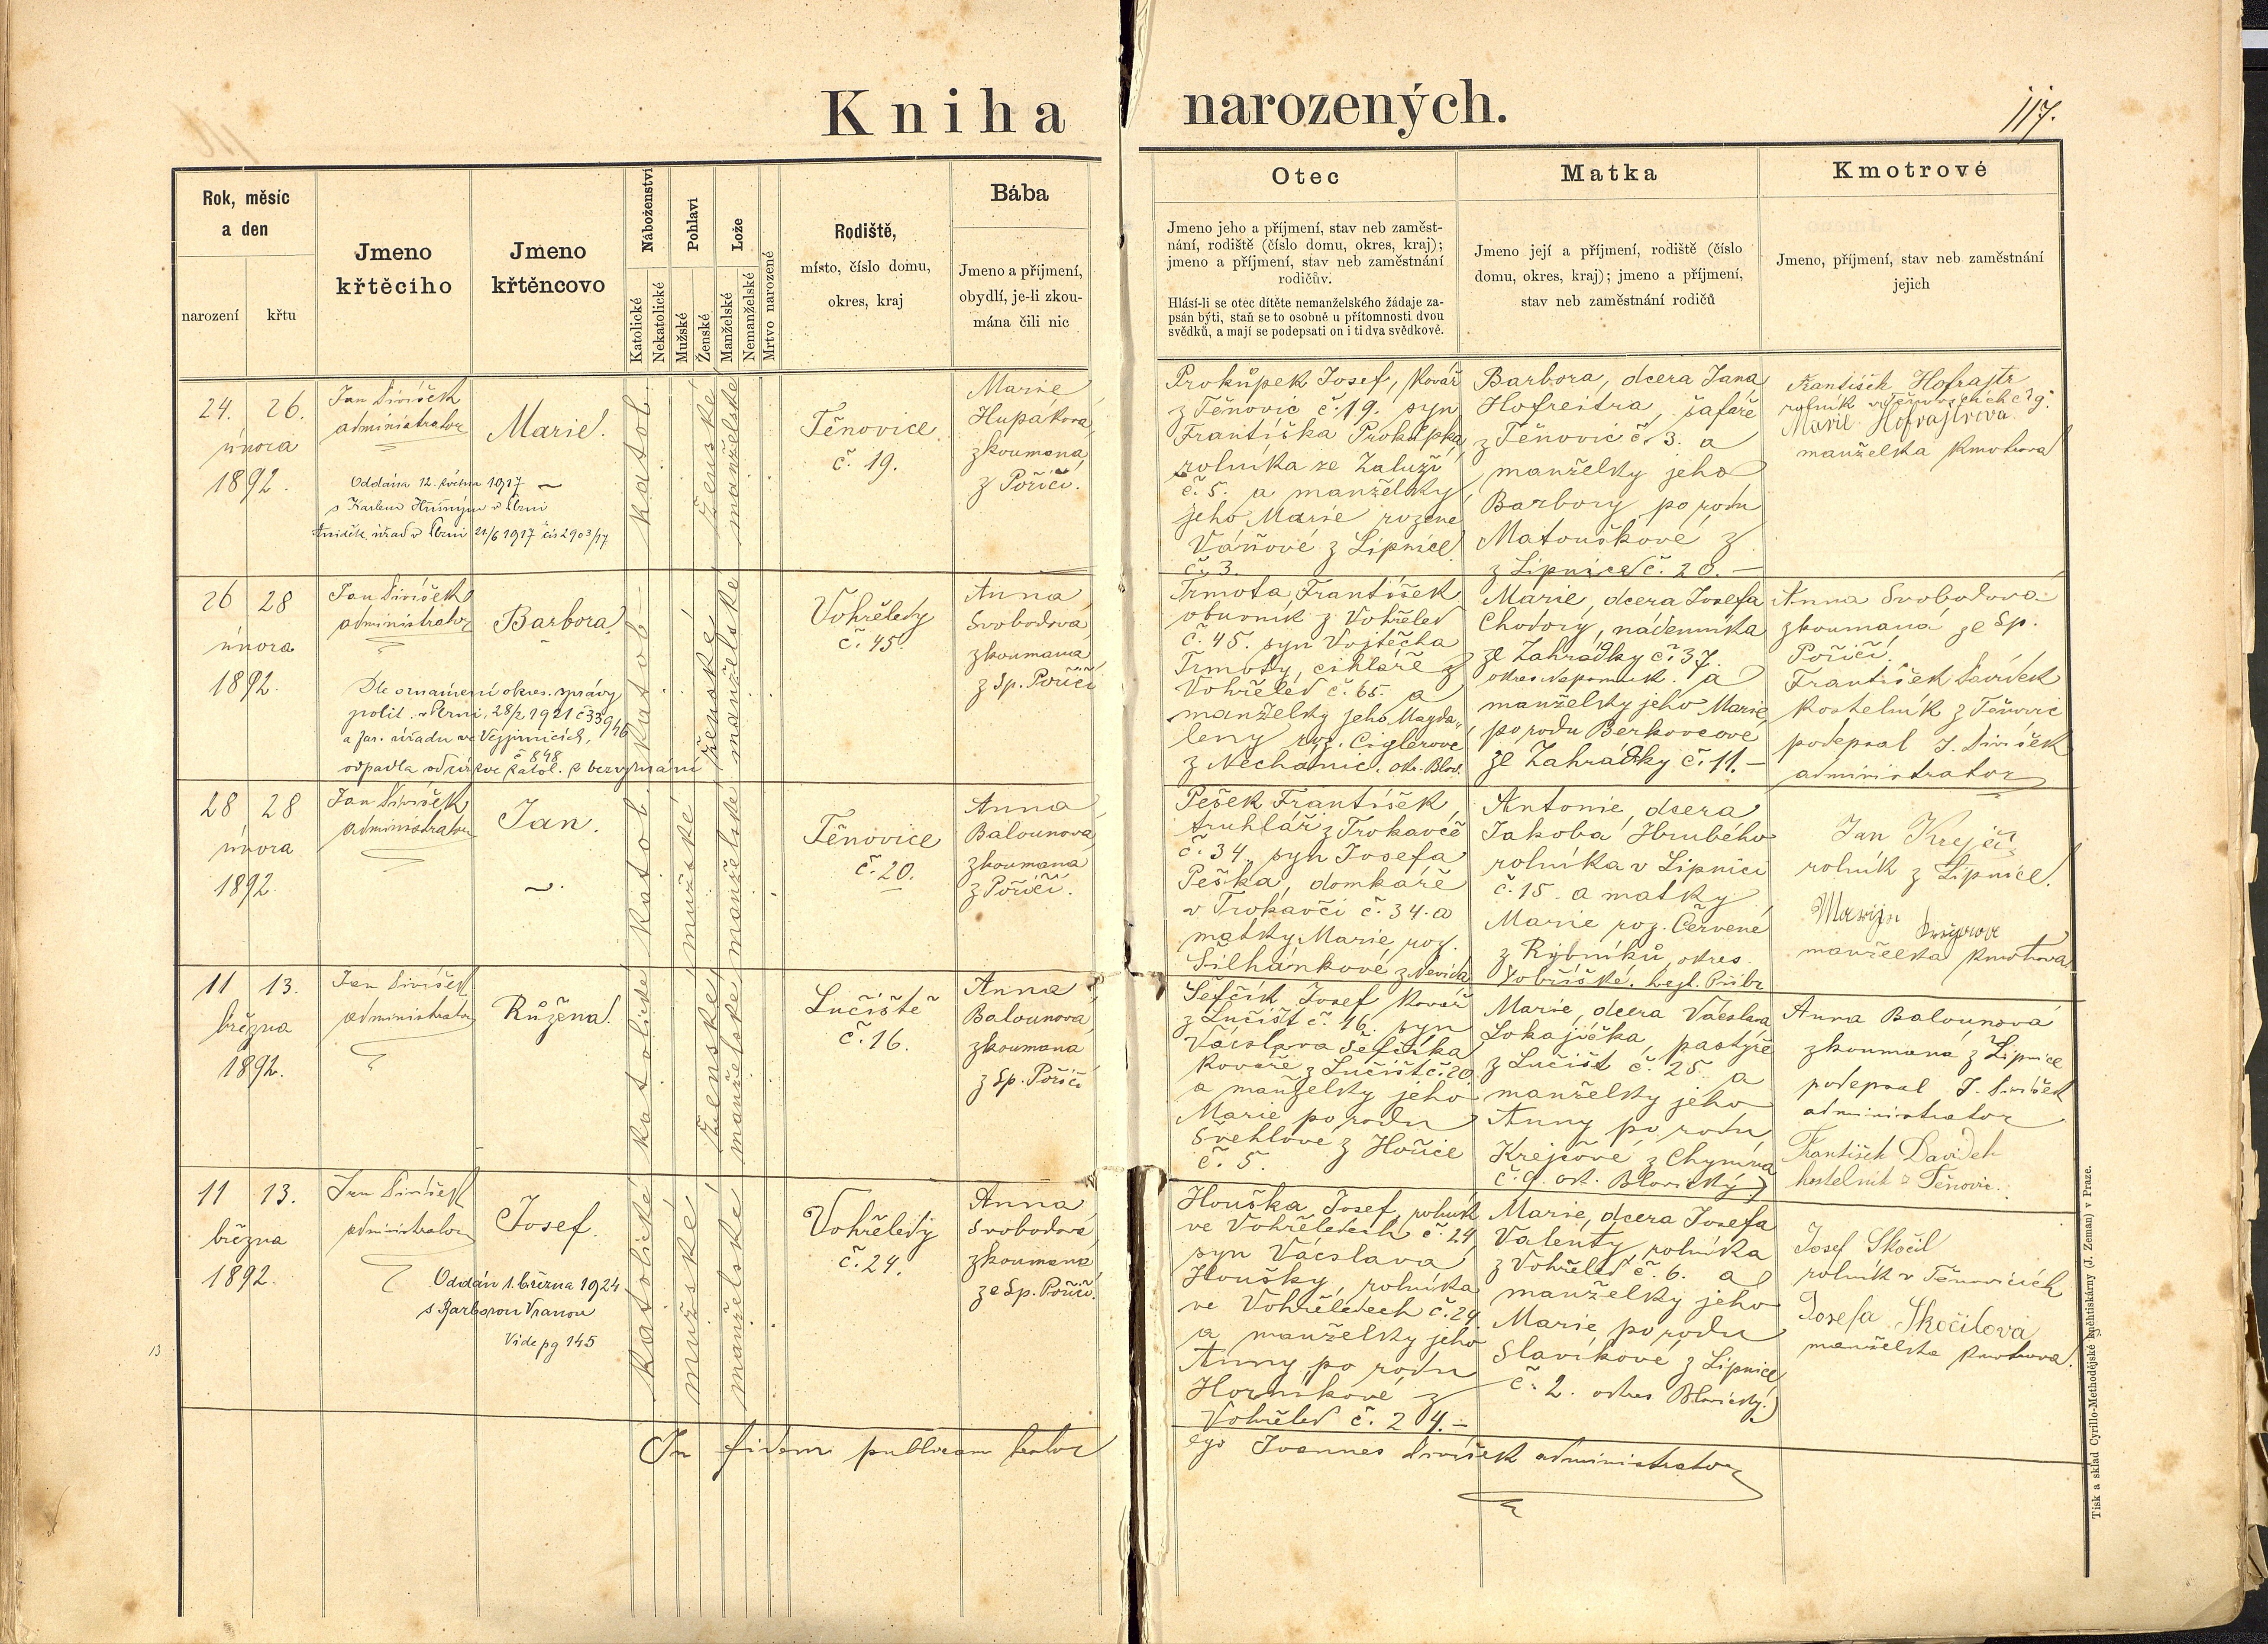 Kniha narozených.
117.
Rok, měsíc
a den
narození
křtu
Jmeno
křtěcího
Jmeno
křtěncovo
Náboženství
Katolické
Nekatolické
Pohlaví
Mužské
Ženské
Lože
Manželské
Nemanželské
Mrtvo narozené
Rodiště,
místo, číslo domu,
okres, kraj
Bába
Jmeno a příjmení,
obydlí, je-li zkou-
mána čili nic
Otec
Jmeno jeho a příjmení, stav neb zaměst-
nání, rodiště (číslo domu, okres, kraj);
jmeno a příjmení, stav neb zaměstnání
rodičův.
Hlásí-li se otec dítěte nemanželského žádaje za-
psán býti, staň se to osobně u přítomnosti dvou
svědků, a mají se podepsati on i ti dva svědkové.
Matka
Jmeno její a příjmení, rodiště (číslo
domu, okres, kraj); jmeno a příjmení,
stav neb zaměstnání rodičů
Kmotrové
Jmeno, příjmení, stav neb zaměstnání
jejich
24. 26.
února
1892.
Jan Divíšek
administrator
Marie.
Oddána 12. května 1917
s Karlem v Plzni
úřad v Plzni 21/6 1917 čís 2903/17
katol.
ženské
manželské
Těnovice
č. 19.
Marie
Hupakova,
zkoumaná,
z Poříčí.
Prokůpek Josef, kovář
z Těnovic č. 19. syn
Františka Prokůpka,
rolníka ze Zaluží
č. 5. a manželky
jeho Marie rozené
Váňové z Lipnice
č. 3.
Barbora, dcera Jana
Hofreitra, šafáře
z Těnovic č. 3. a
manželky jeho
Barbory po rodu
Matouškové z
z Lipnice č. 20. —
František Hofrajtr
rolník v Těnovicích č 9.
Marie Hofrajtrova
manželka kmotrova
26 28
února
1892.
Jan Divíšek
administrator
Barbora.
Dle oznámení okres. správy
polit. v Plzni, 28/2 1921 č 33946
a far. úřadu ve Vejprnicích,
č 848
odpadla od církve katol. k bezvyznání
katol.
ženské
manželské
Vohřeledy
č. 45.
Anna
Svobodova,
zkoumaná,
z Sp. Poříčí
Trmota František
obuvník z Vohřeled
č. 45. syn Vojtěcha
Trmoty, cihláře z
Vohřeled č. 65. a
manželky jeho Magda-
leny roz. Ciglerove
z Nechanic. okr. Blov.
Marie, dcera Josefa
Chodory, nádenníka
ze Zahrádky č. 37.
okres Nepomuk. a
manželky jeho Marie
po rodu Berkovcové
ze Zahrádky č. 11. —
Anna Svobodova
zkoumaná ze Sp.
Poříčí.
František Davídek
kostelník z Těnovic
podepsal J. Divíšek
administrator
28 28
února
1892.
Jan Divíšek
administrator
Jan.
katol.
mužské
manželské
Těnovice
č. 20.
Anna
Balounová,
zkoumana
z Poříčí.
Pešek František,
truhlář z Trokavče
č. 34. syn Josefa
Peška, domkáře
v Trokavči č. 34. a
matky Marie roz.
Šilhánkové z Nevida
Antonie, dcera
Jakoba Hrubého
rolníka v Lipnici
č. 15. a matky
Marie roz. Červené
z Rybníků, okres
Dobříšské. hejt. Příbr.
Jan Krejčí
rolník z Lipnice.
manželka kmotrova
11 13.
března
1892.
Jan Divíšek
administrator
Růžena.
katolické
ženské
manželské
Lučiště
č. 16.
Anna
Balounova,
zkoumana
z Sp. Poříčí
Šefčík Josef kovář
z Lučišť č. 16. syn
Václava Šefčíka
kováře z Lučišť č. 20
a manželky jeho
Marie po rodu
Švehlove z Hořice
č. 5.
Marie, dcera Václava
Lokajíčka, pastýře
z Lučišť č. 25. a
manželky jeho
Anny po rodu
Krejčové z Chynína
č. 9. ok. Blovický
Anna Balounová
zkoumaná z Lipnice
podepsal J. Divíšek
administrator
František Davídek
kostelník z Těnovic.
11 13.
března
1892.
Jan Divíšek
administrator
Josef.
Oddán 1. března 1924
s Barborou Vranou
Vide pg 145
13
katolické
mužské
manželské
Vohřeledy
č. 24.
Anna
Svobodova,
zkoumana,
ze Sp. Poříčí.
Houška Josef, rolník
ve Vohřeledech č. 24
syn Václava
Houšky, rolníka
ve Vohřeledech č. 24
a manželky jeho
Anny po rodu
Horníkové z
Vohřeled č. 24. —
Marie, dcera Josefa
Valenty, rolníka
z Vohřeled č. 6. a
manželky jeho
Marie po rodu
Slavíkové z Lipnice
č. 2. okres Blovický.
Josef Skočil
rolník v Těnovicích
Josefa Skočilová
manželka kmotrova.
In fidem publicam testor
ego Joannes Divíšek administrator
Tisk a sklad Cyrillo-Methodějské kněhtiskárny (J. Zeman) v Praze.